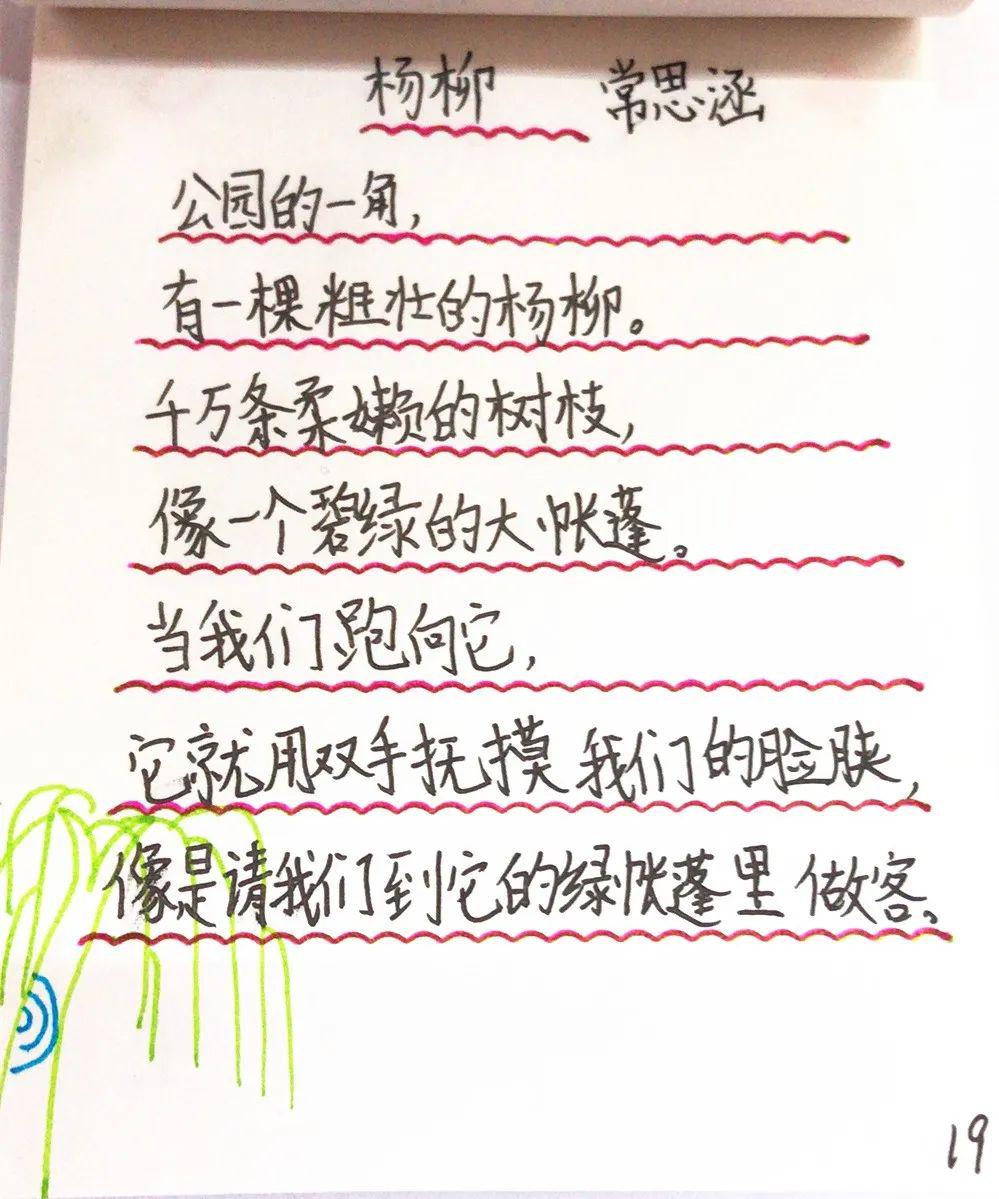 杨柳 常思涵
公园的一角，
有一棵粗壮的杨柳。
千万条柔嫩的树枝，
像一个碧绿的大帐蓬。
当我们跑向它，
它就用双手抚摸我们的脸肤，
像是请我们到它的绿帐蓬里做客。
19